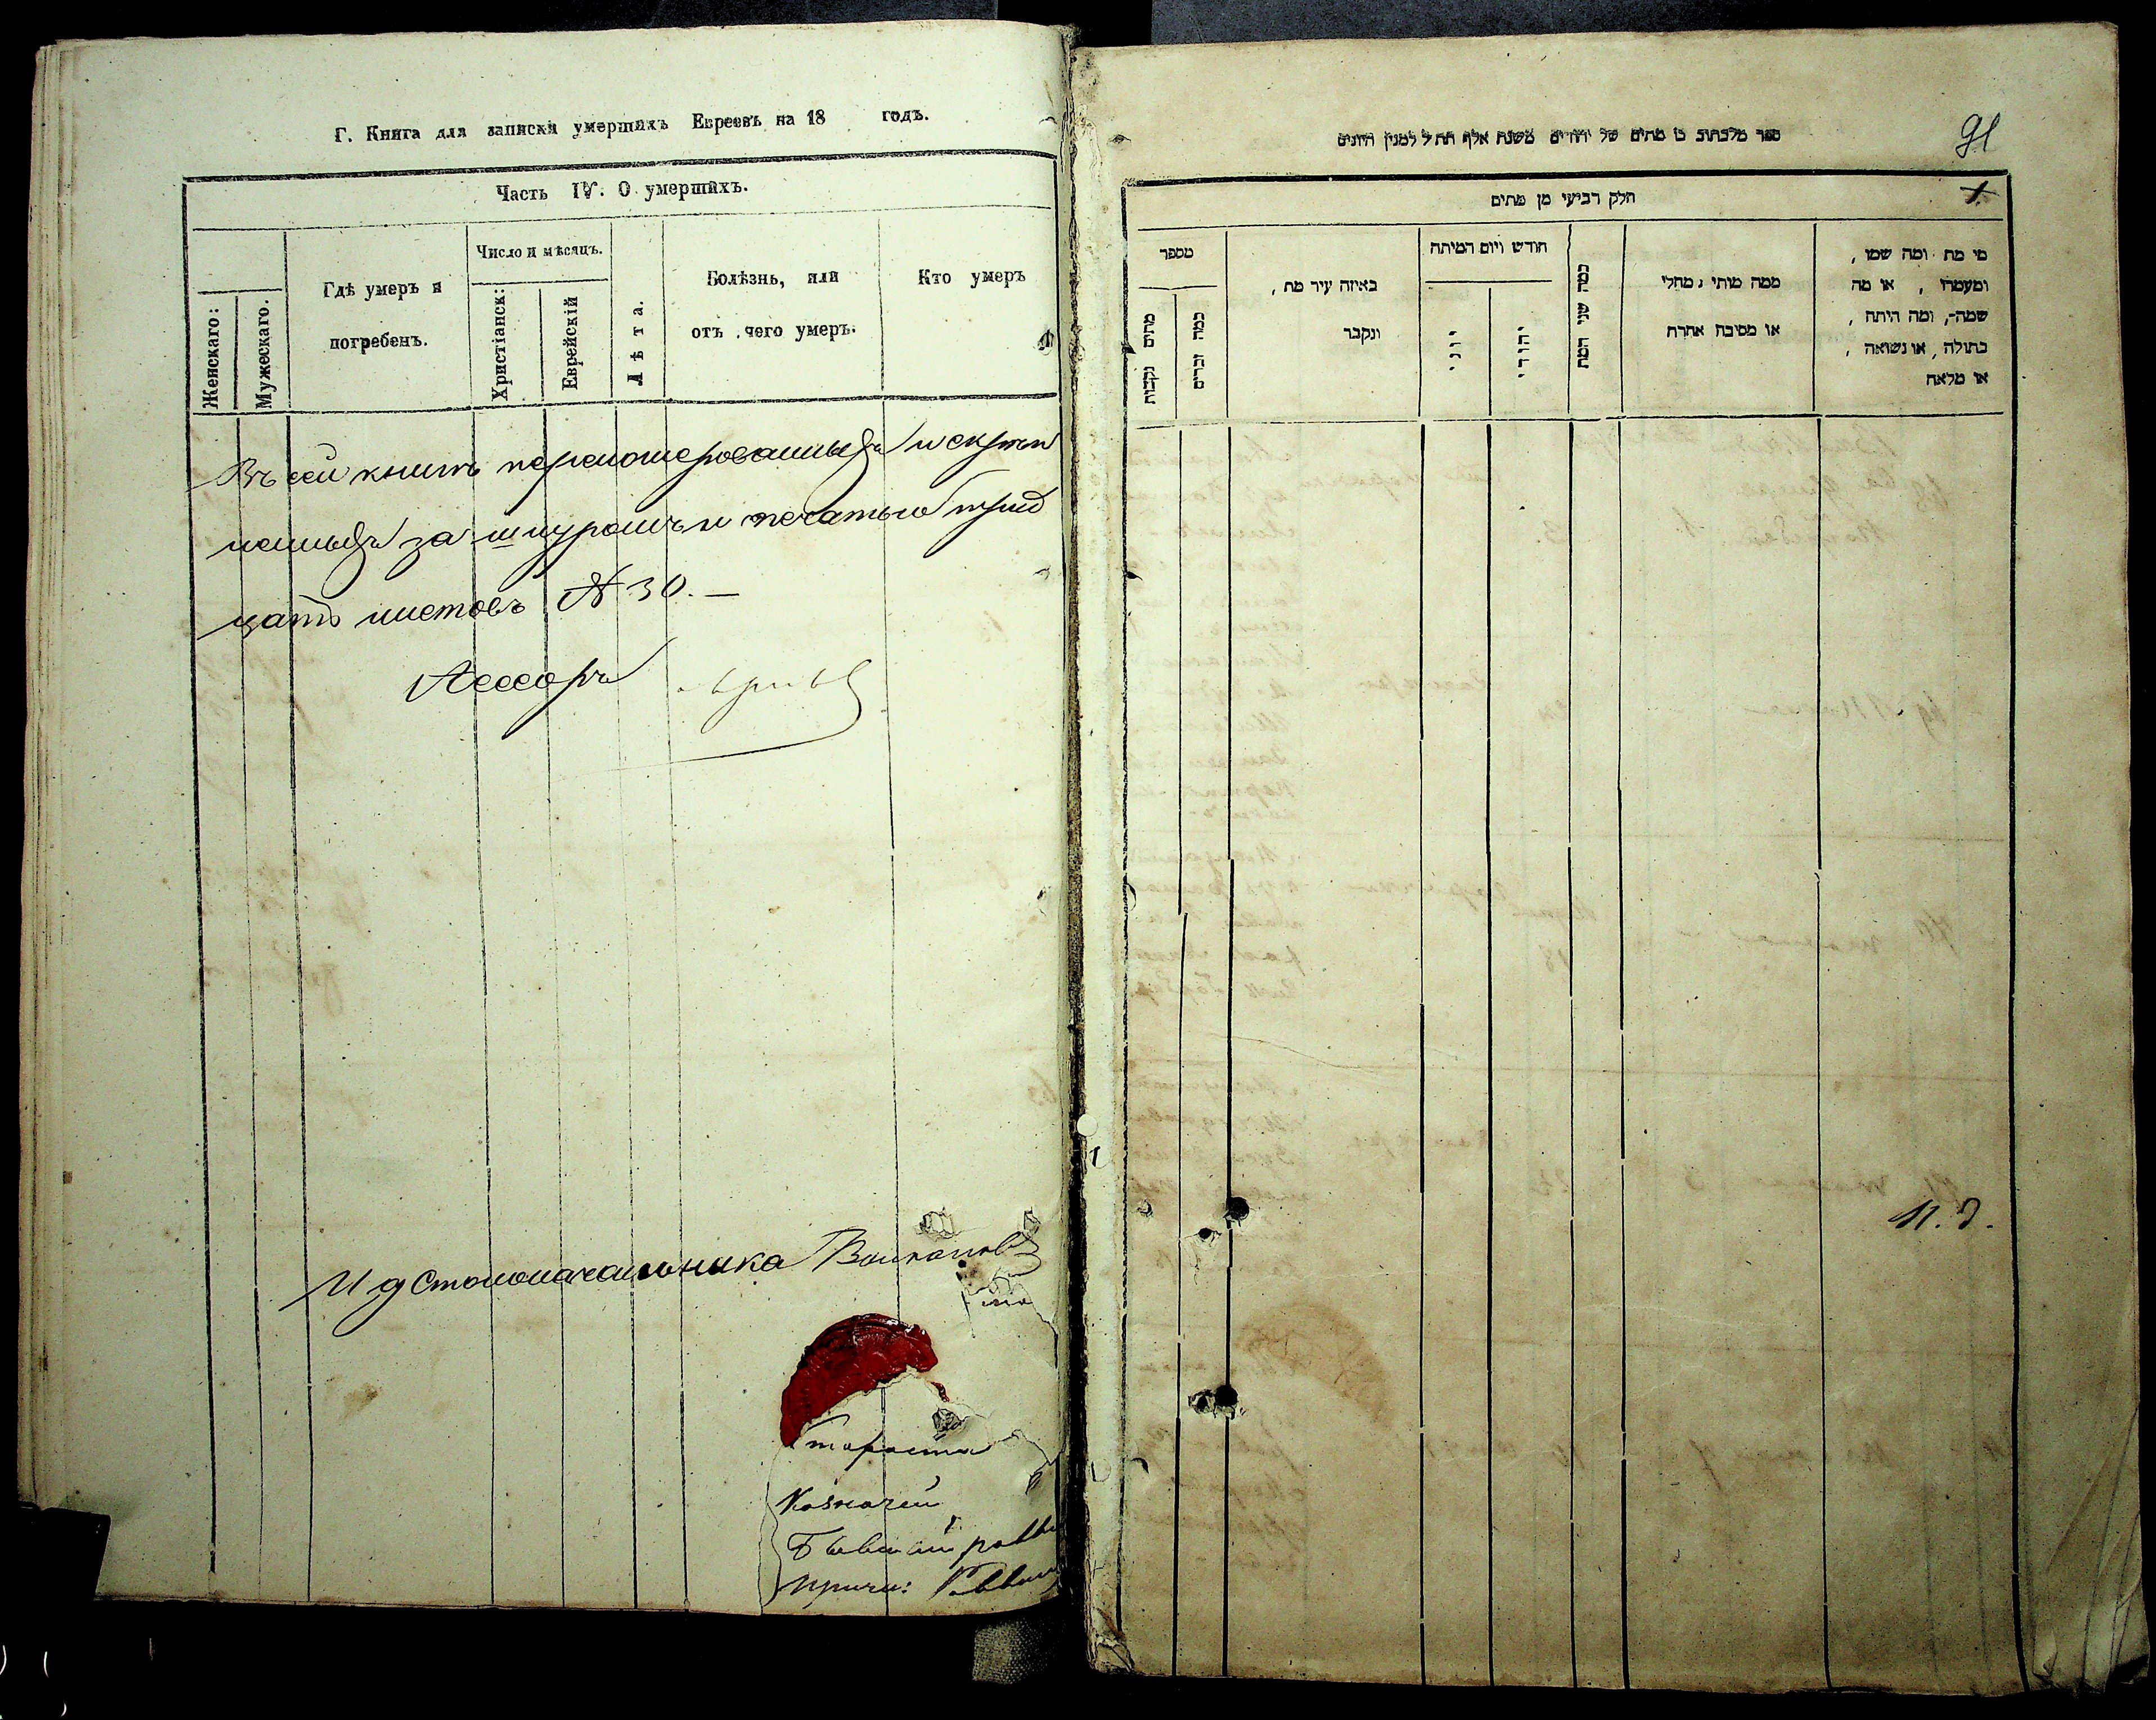 Г. Книга для записки умершихъ Евреевъ на 18 годъ.
Часть IV. О умершихъ.
Женскаго:
Мужескаго.
Гдѣ умеръ и
погребенъ.
Число и мѣсяцъ.
Христіанск:
Еврейскій
Лѣта.
Болѣзнь, или
отъ чего умеръ.
Кто умеръ
Въ сей книгѣ перенумерованныхъ и скрѣп
ленныхъ за шнуромъ и печатью трид
цать листовъ № 30. —
Асессоръ
И д Столоначальника
Староста
Казначей
Бывший равви
91
ספר מלכתוב בו מתים של יהודים משנת אלף תת״ל למנין היונים
1.
חלק רביעי מן מתים
מספר
מתים נקבות
כמה זכרים
באיזה עיר מת,
ונקבר
חודש ויום המיתה
יוני
יהודי
כמה שני המת
ממה מותי׳ מחלי
או מסיבה אחרת
מי מת ומה שמו,
ומעמדו, או מה
שמה, ומה היתה,
בתולה, או נשואה,
או מלאה
И. д.